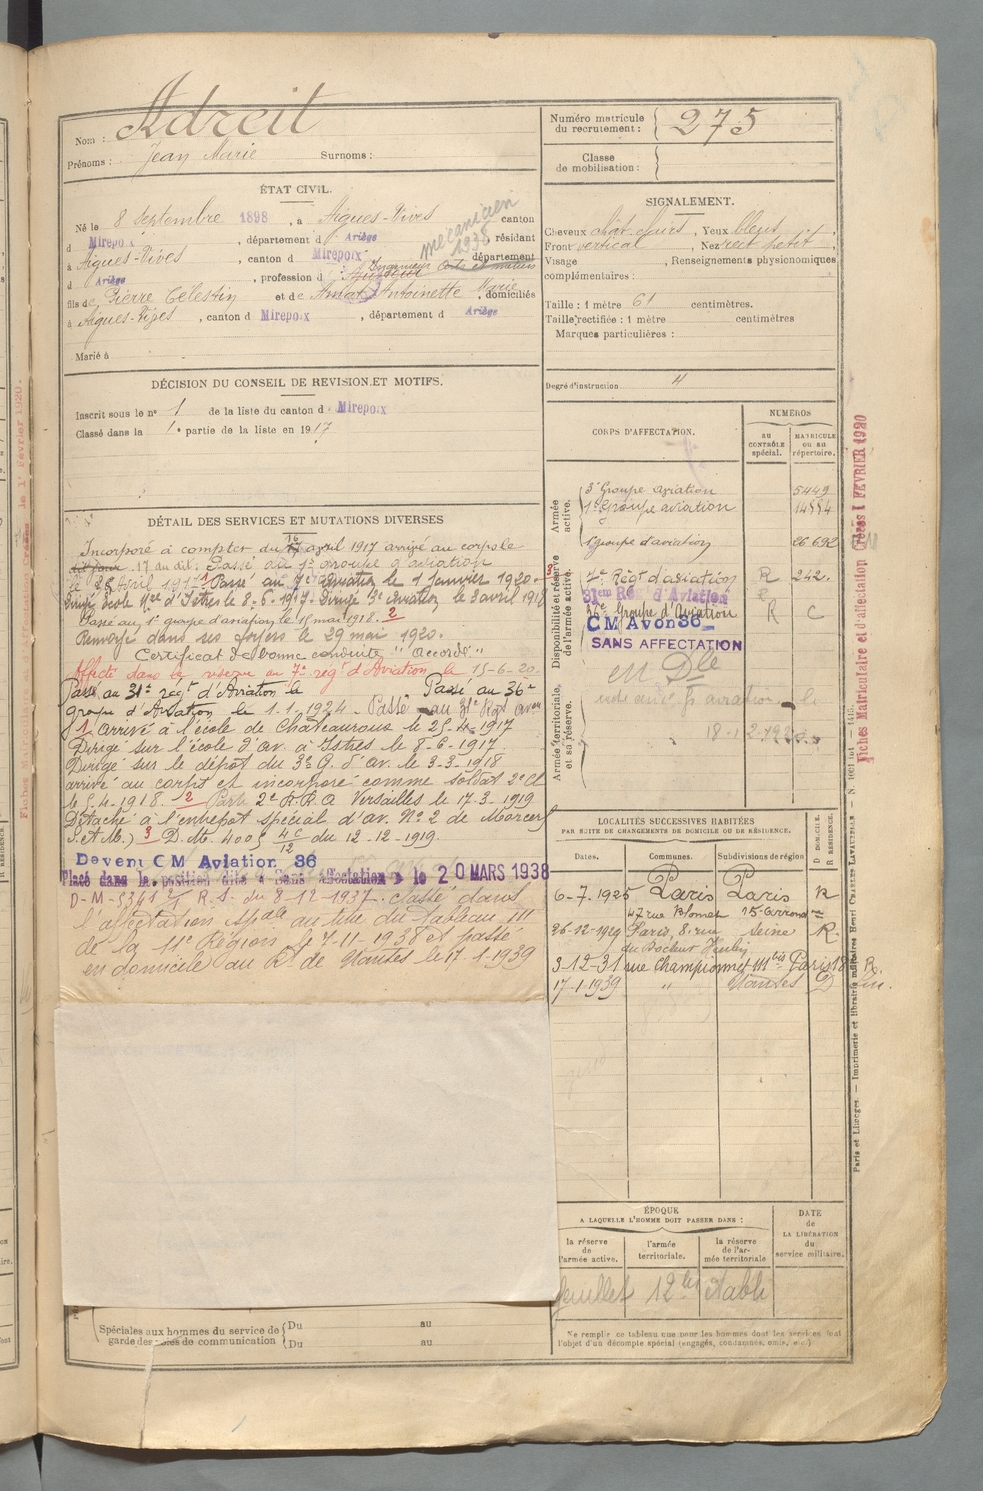 Nom : Adreit
Prénoms : Jean Marie Surnoms :
Numéro matricule du recrutement : 275
Classe de mobilisation :
ÉTAT CIVIL.
Né le 8 Septembre 1898, à Aigues-Vives canton
d Mirepoix, département d Ariège résidant
mécanicien 1938
à Aigues-Vives, canton d Mirepoix département
d Ariège, profession d
fils de Pierre Celestin et de Amat Antoinette Marie, domiciliés
à Aigues-Vives, canton d Mirepoix, département d Ariège
Marié à
SIGNALEMENT.
Cheveux chât. clairs, Yeux bleus,
Front vertical, Nez rect petit,
Visage, Renseignements physionomiques
complémentaires :
Taille : 1 mètre 61 centimètres.
Taille rectifiée : 1 mètre centimètres
Marques particulières :
Degré d'instruction
DÉCISION DU CONSEIL DE REVISION ET MOTIFS.
Inscrit sous le n° 1 de la liste du canton d Mirepoix
Classé dans la 1e partie de la liste en 1917
DÉTAIL DES SERVICES ET MUTATIONS DIVERSES
Incorporé à compter du 16 april 1917 arrivé au corps le
17 du dit. Passé au 1er groupe d'aviation
le 25 April 1917 1 Passé au 7e aviation le 1 Janvier 1920 3
Dirigé École d'Istres le 8-6-1917 Dirigé 3e aviation le 3 avril 1918
Passé au 1er groupe d'aviation le 15 mai 1918. 2
Renvoyé dans ses foyers le 29 mai 1920.
Certificat de bonne conduite "accordé"
Affecté dans la réserve au 7e régt d'Aviation le 15-6-20
Passé au 31e regt d'Aviation le Passé au 36e
groupe d'Aviation le 1.1.1924 - Passé au 31e Regt Avon
1 Arrivé à l'école de Chateauroux le 25-4-1917
Dirigé sur l'école d'av. à Istres le 8-6-1917.
Dirigé sur le dépôt du 3e G. d'av. le 3-3-1918
arrivé au corps et incorporé comme soldat 2e Cl
le 5-4-1918. 2 Parti 2e R.R.A Versailles le 17.3.1919
Détaché à l'entrepôt spécial d'av. No 2 de Morcerf
S. et M.) 3 D.M. 4005 4C/12 du 12-12-1919.
Devenu CM Aviation 36
Placé dans la position dite « Sans Affectation » le 20 MARS 1938
D-M-5341 R.S. du 8-12-1937. classé dans
l'affectation spale au titre du Tableau III
de la 11e Région le 7-11-1938 et passé
en domicile au Rt de Nantes le 17.1.1939
Spéciales aux hommes du service de garde des voies de communication
Du au
Du au
CORPS D'AFFECTATION.
NUMÉROS
AU CONTRÔLE spécial.
MATRICULE ou au répertoire.
Armée active.
3e Groupe aviation 5449
1er Groupe aviation 14554
1 groupe d'aviation 26692
Disponibilité et réserve de l'armée active.
4e Régt d'aviation R 242.
31em Rég d'Aviation
36e Groupe d'Aviation R C
CM Avon 36
SANS AFFECTATION
Armée territoriale et sa réserve.
LOCALITÉS SUCCESSIVES HABITÉES
PAR SUITE DE CHANGEMENTS DE DOMICILE OU DE RÉSIDENCE.
Dates. Communes. Subdivisions de région D DOMICILE. R RÉSIDENCE.
6-7-1925 Paris Paris R
47 rue Blomet 15e Arrond
26-12-1929 Paris, 8, rue Seine R.
du Docteur Heulin
3-12-31 rue Championnet 111 bis Paris 18 R.
17-1-1939 " Nantes D
ÉPOQUE
A LAQUELLE L'HOMME DOIT PASSER DANS :
la réserve de l'armée active.
l'armée territoriale.
la réserve de l'armée territoriale
DATE de LA LIBÉRATION du service militaire.
feuillet 12 bis établi
Ne remplir ce tableau que pour les hommes dont les services font
l'objet d'un décompte spécial (engagés, condamnés, omis, etc.)
Fiches Matriculaire et d'affectation Créées 1 FEVRIER 1920
Paris et Limoges. — Imprimerie et librairie militaires Henri CHARLES-LAVAUZELLE